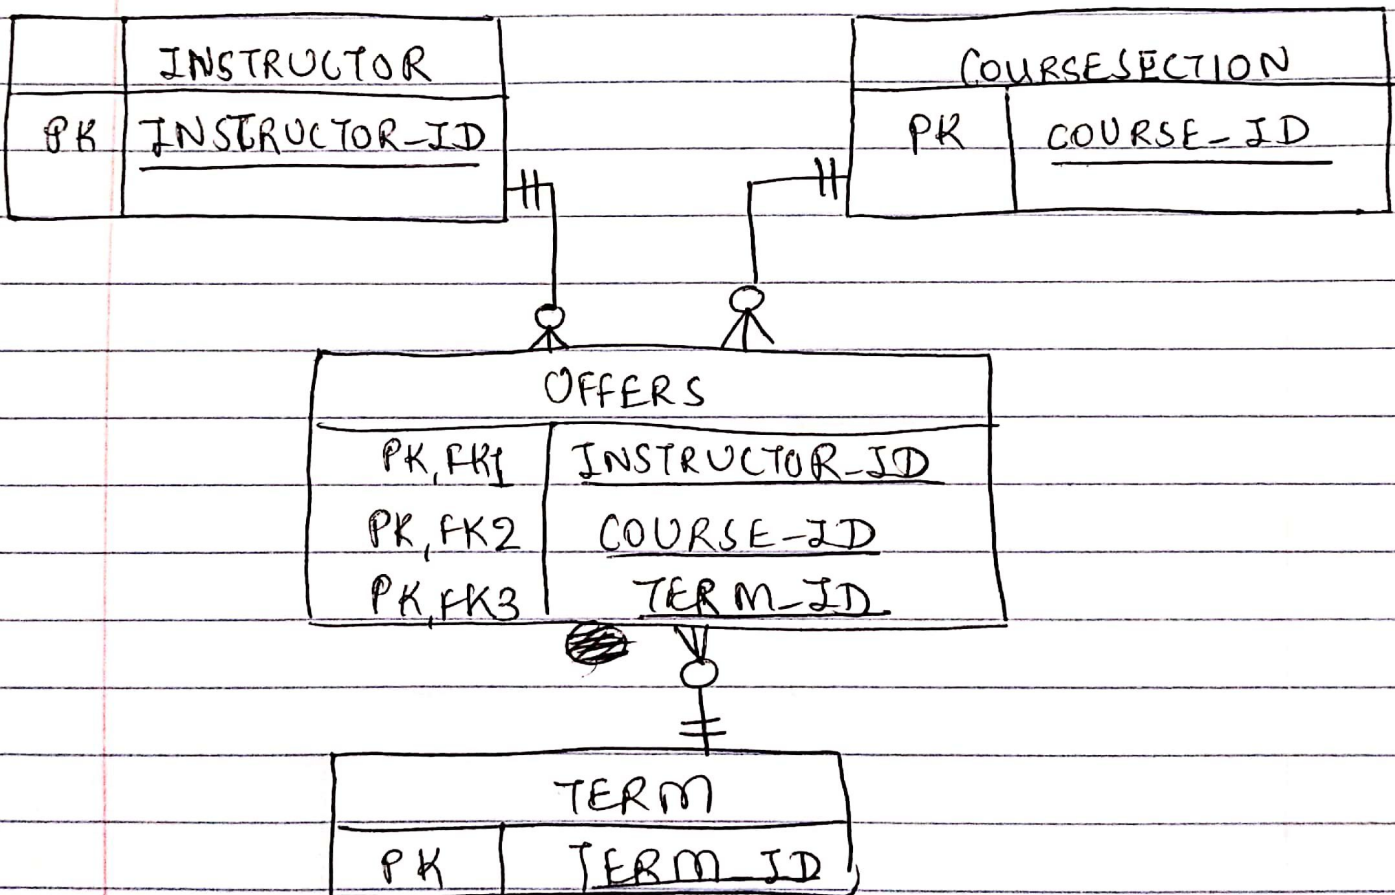 INSTRUCTOR
PK INSTRUCTOR_ID
COURSESECTION
PK COURSE_ID
OFFERS
PK, FK1 INSTRUCTOR_ID
PK, FK2 COURSE_ID
PK, FK3 TERM_ID
TERM
PK TERM_ID